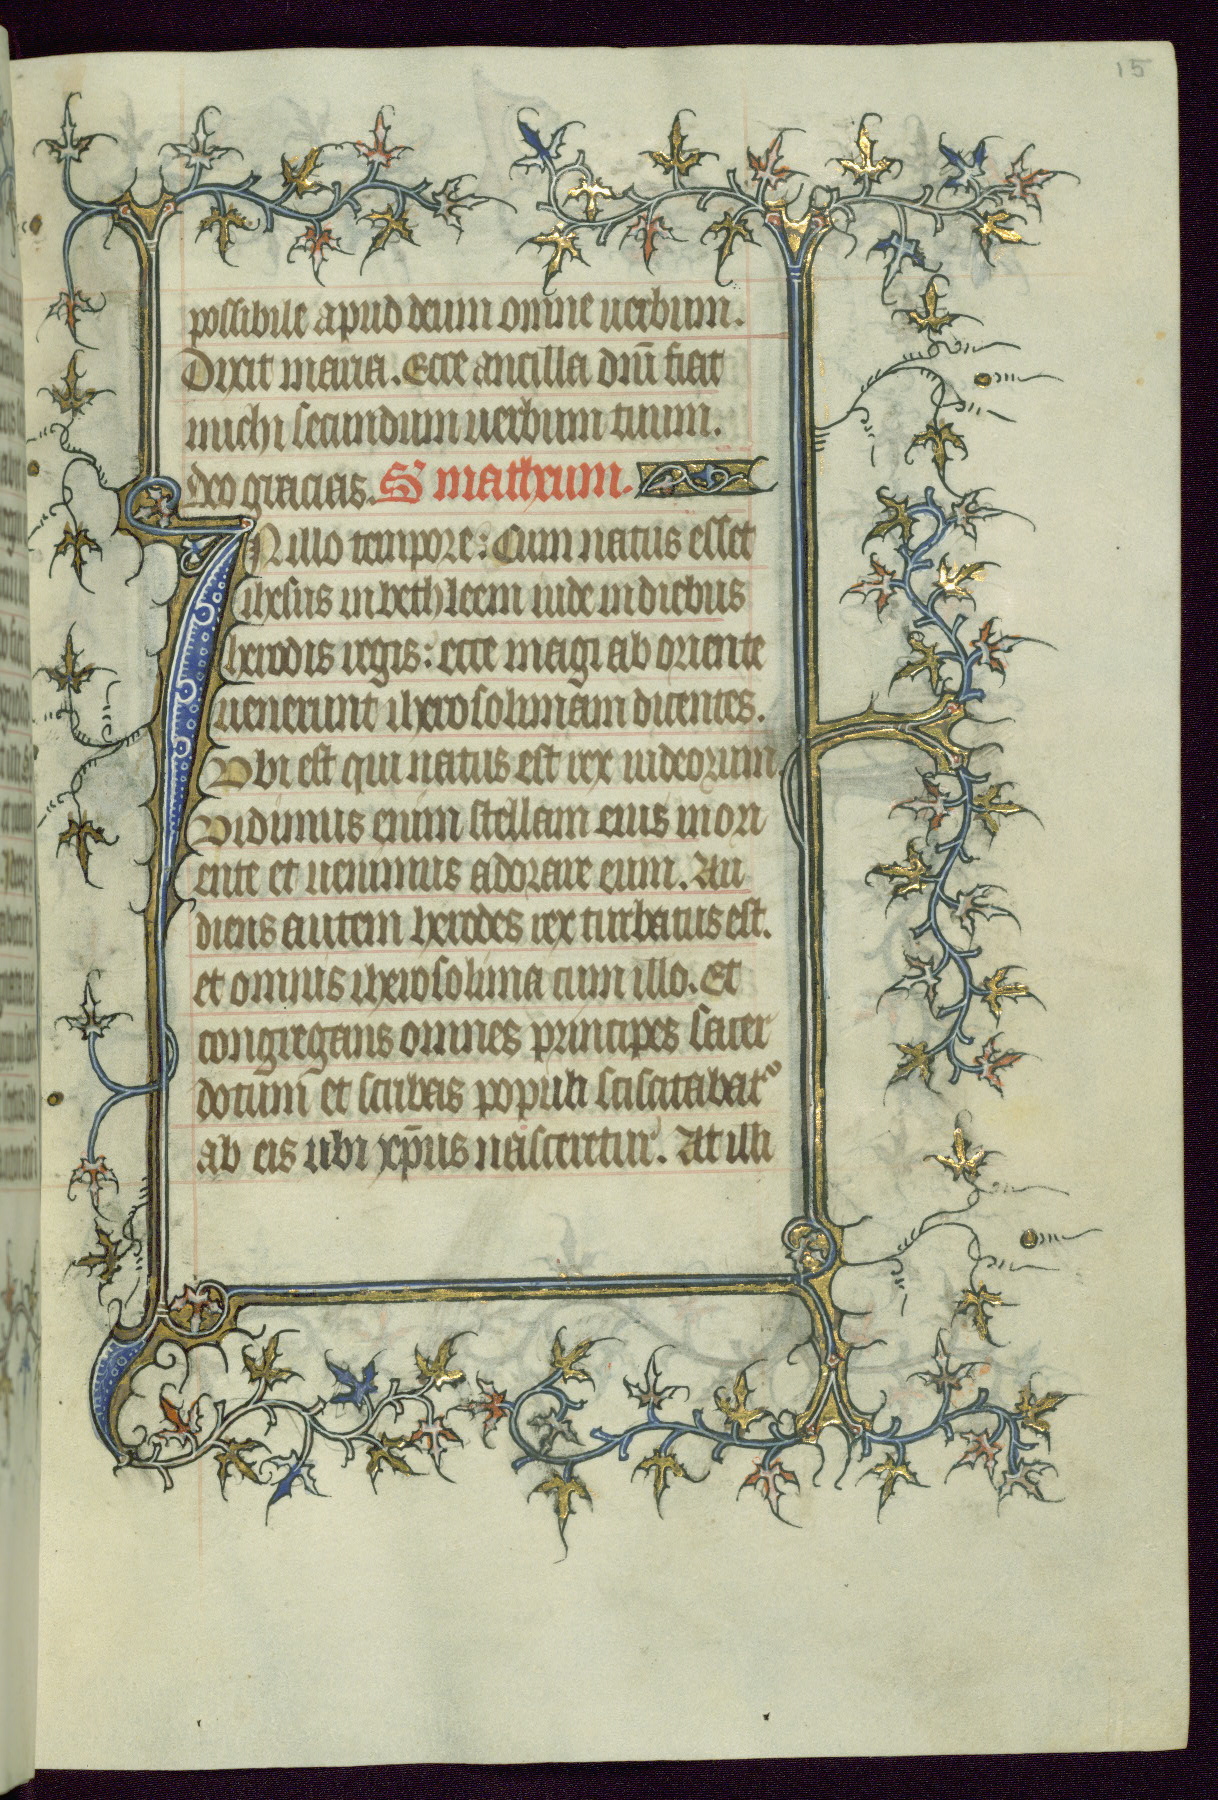 15
possibile apud deum omne uerbum.
Dixit maria. Ecce ancilla dnī fiat
michi secundum uerbum tuum.
deo gracias. S' matheum.
IN illo tempore: Cum natus esset
ihesus in bethleem iude in diebus
herodis regis: ecce magi ab oriente
uenerunt iherosolimam dicentes.
Vbi est qui natus est rex iudeorum
Vidimus enim stellam eius in ori
ente et uenimus adorare eum. Au
diens autem herodes rex turbatus est.
et omnis iherosolima cum illo. Et
congregans omnes principes sacer
dotum et scribas populi sciscitabat᷑
ab eis ubi xp̄us nasceretur. At illi